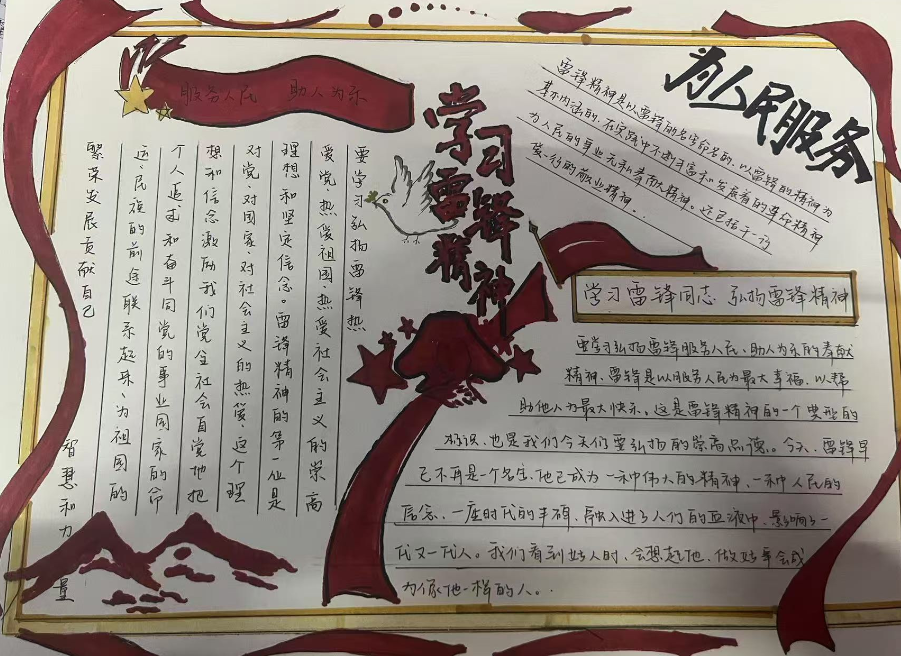 服务人民 助人为乐
学习
雷锋
精神
为人民服务
雷锋精神是以雷锋的名字命名的、以雷锋的精神为
基本内涵的、在实践中不断丰富和发展着的革命精神
为人民的事业无私奉献精神。还包括干一行
爱一行的敬业精神。
要学习弘扬雷锋热
爱党、热爱祖国、热爱社会主义的崇高
理想和坚定信念。雷锋精神的第一位是
对党、对国家、对社会主义的热爱、这个理
想和信念激励我们党全社会自觉地把
个人追求和奋斗同党的事业国家的命
运民族的前途联系起来、为祖国的
繁荣发展贡献自己 智慧和力量
学习雷锋同志 弘扬雷锋精神
要学习弘扬雷锋服务人民、助人为乐的奉献
精神、雷锋是以服务人民为最大幸福、以帮
助他人为最大快乐、这是雷锋精神的一个典型的
标识、也是我们今天们要弘扬的崇高品德。今天、雷锋早
已不再是一个名字、他已成为一种伟大的精神、一种人民的
信念、一座时代的丰碑、融入进了人们的血液中、影响了一
代又一代人。我们看到好人时、会想起他、做好事会成
为像他一样的人。